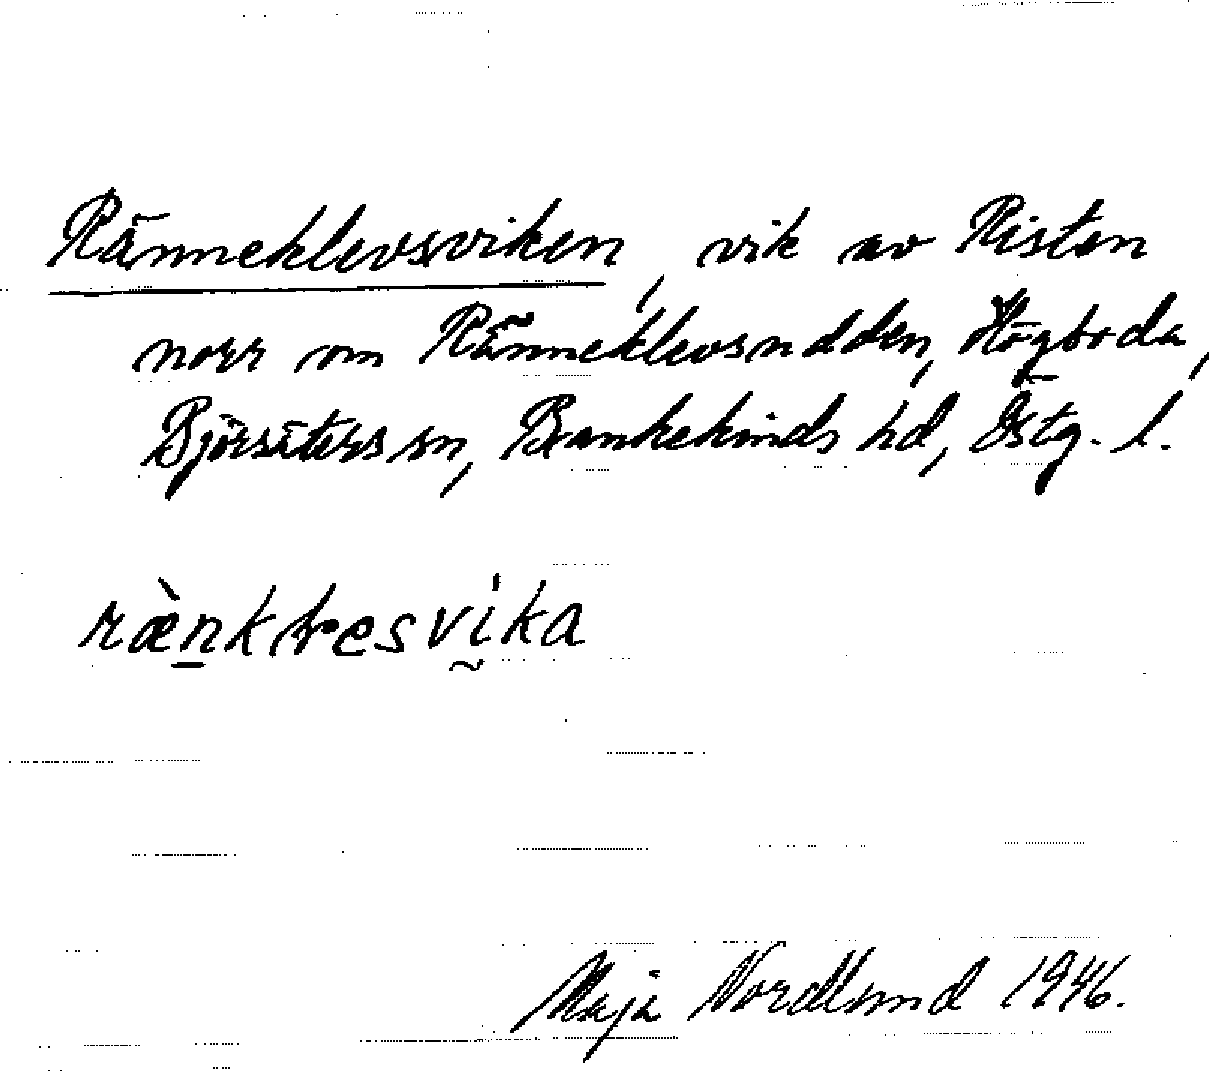 Ränneklevsviken, vik av Risten
norr om Ränneklevsudden, Högboda,
Björsäters sn, Bankekinds hd, Östg. l.
Maja Nordlund 1946.